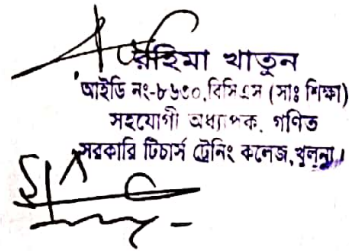 রহিমা খাতুন
আইডি নং-৮৬৩০,বিসিএস (সাঃ শিক্ষা)
সহযোগী অধ্যাপক, গণিত
সরকারি টিচার্স ট্রেনিং কলেজ,খুলনা।